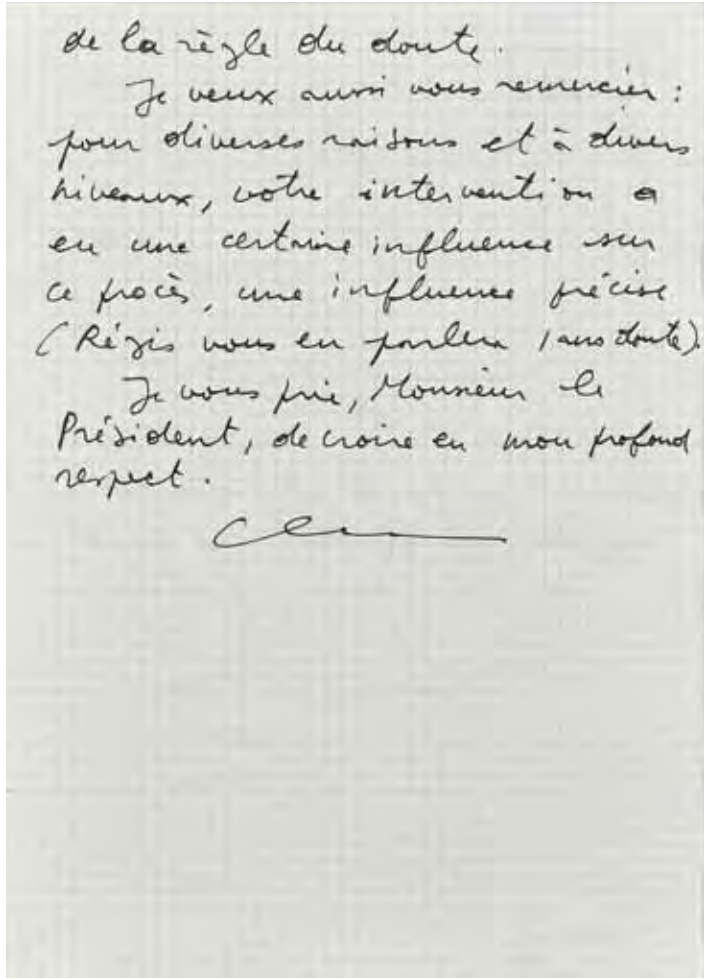 de la règle du doute.
Je veux aussi vous remercier :
pour diverses raisons et à divers
niveaux, votre intervention a
eu une certaine influence sur
ce procès, une influence précise
(Régis vous en parlera sans doute).
Je vous prie, Monsieur le
Président, de croire en mon profond
respect.